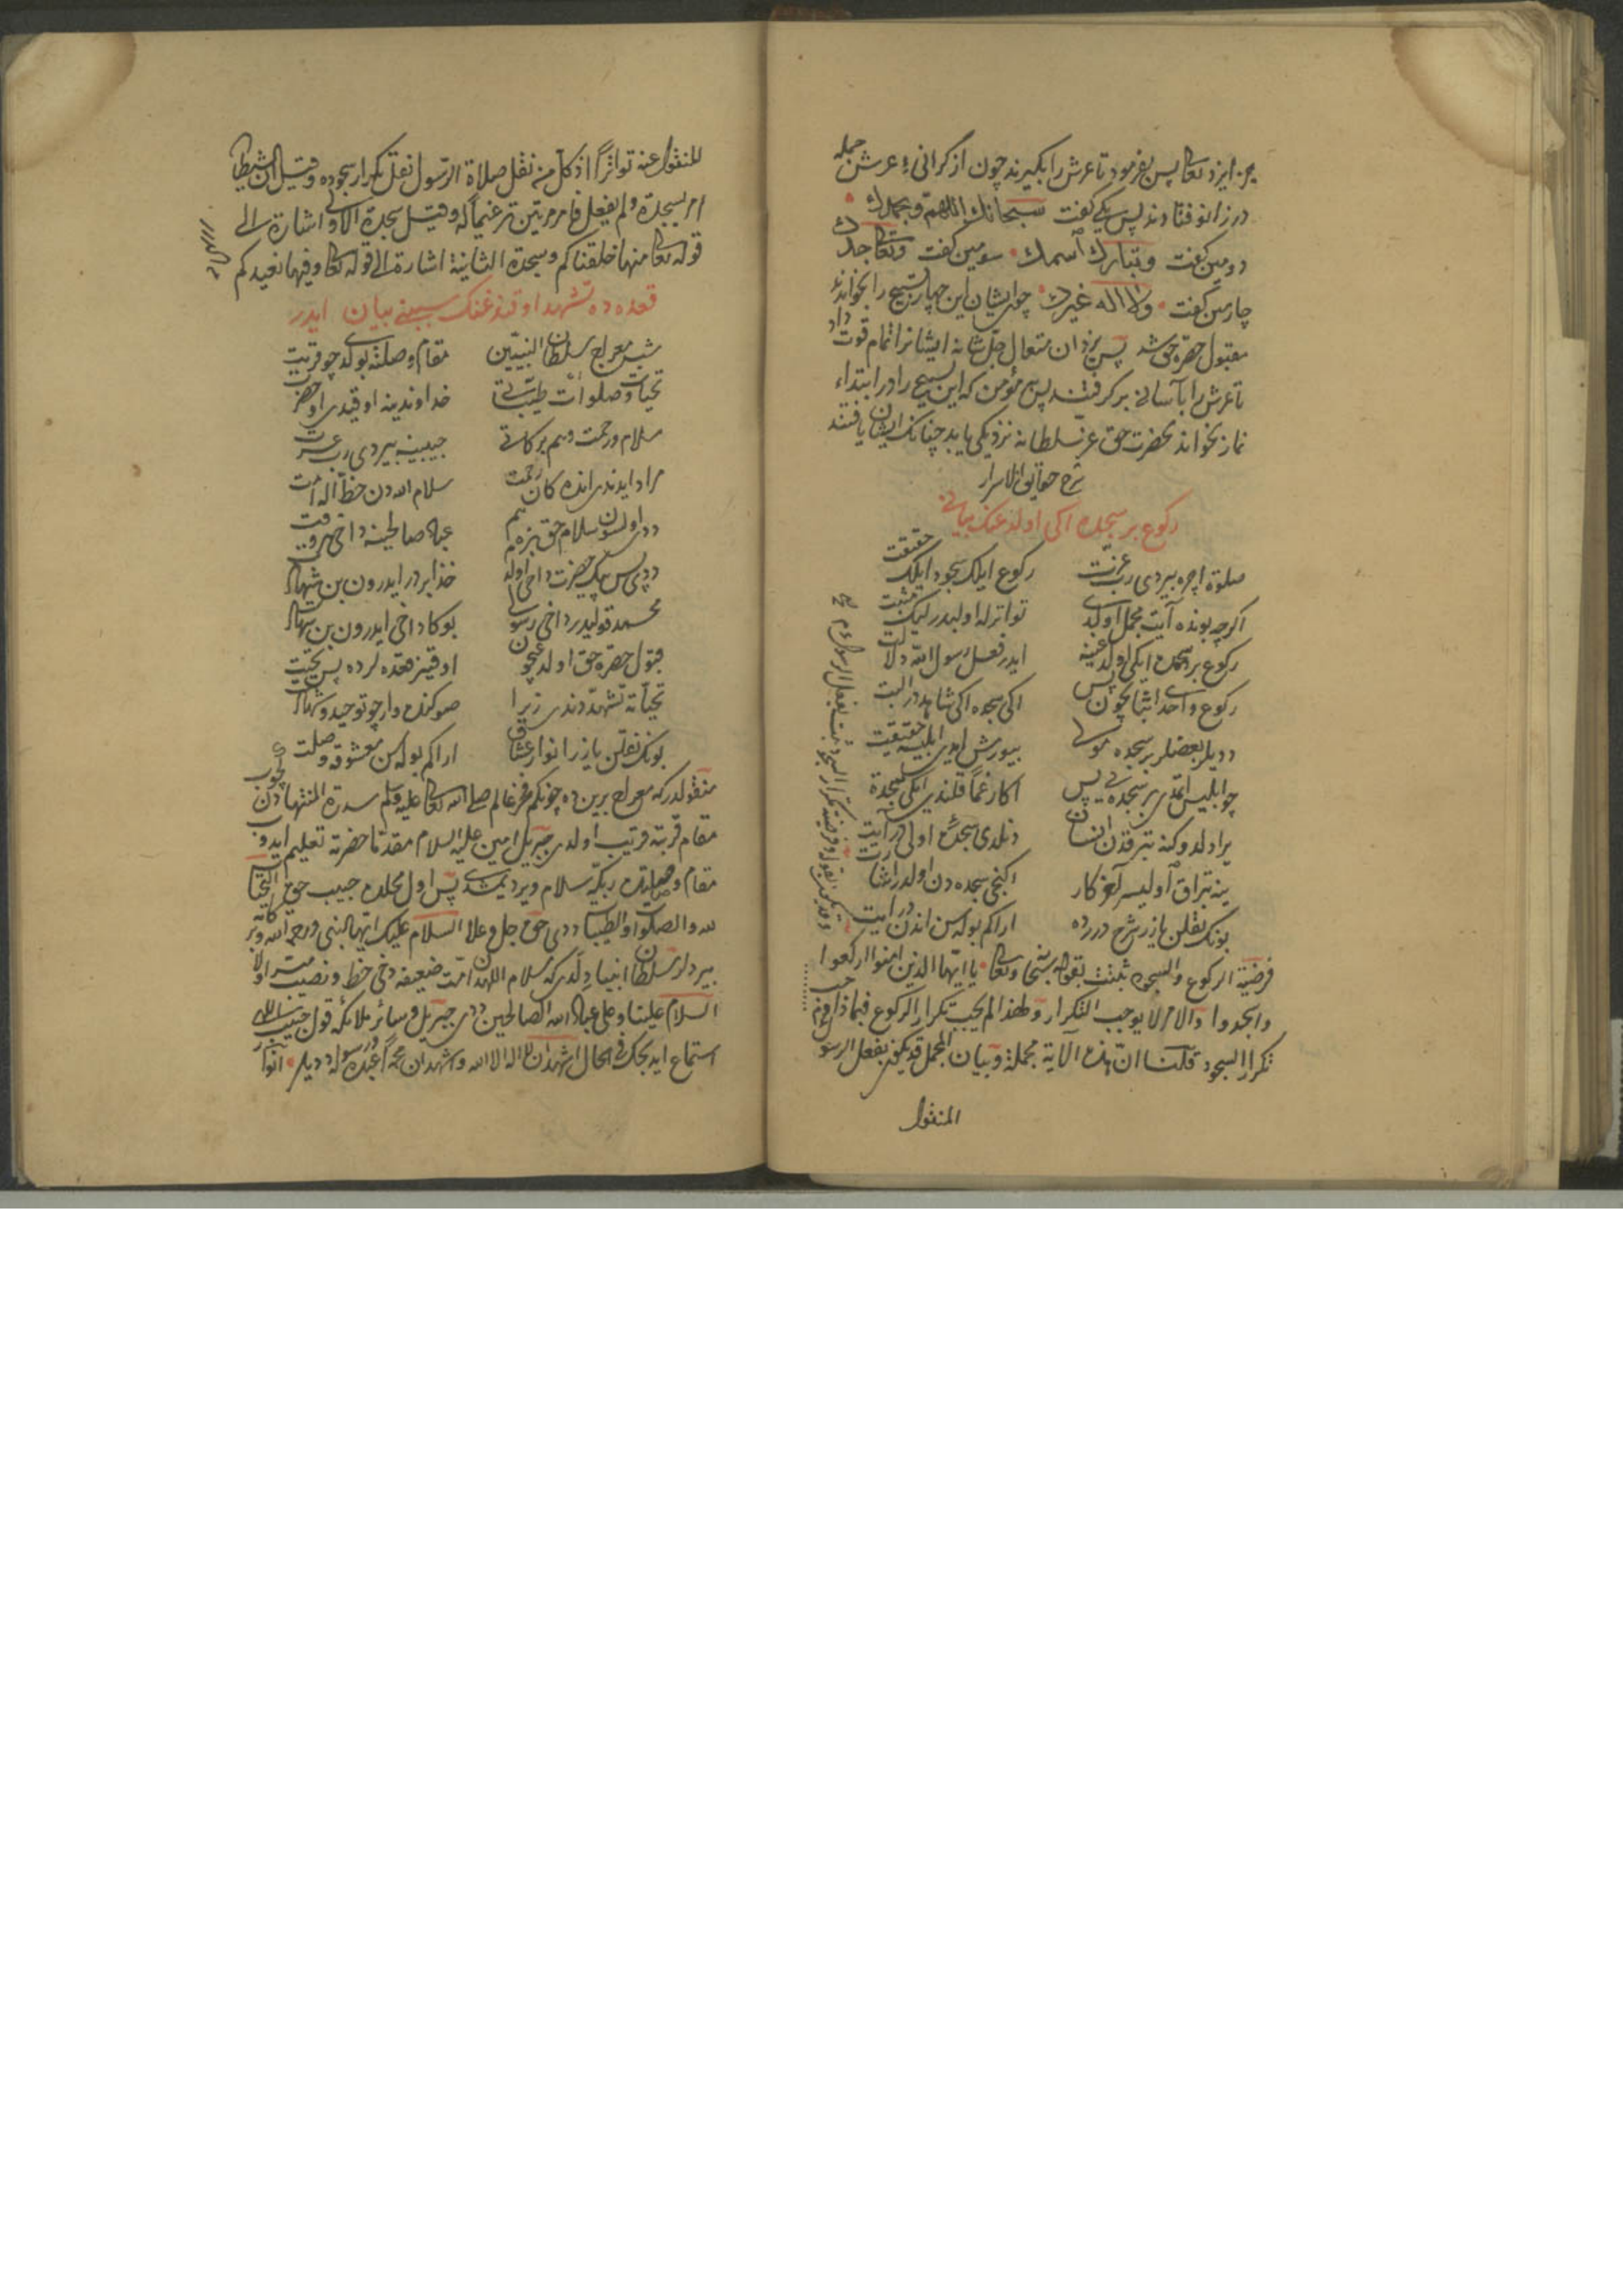 ایزد تعا پس بفرمود تا عرش را بگیرند چون از گرانیء عرش جمله
در زانو فتادند پس یکی گفت سبحانك اللهم وبحمدك
دومین گفت وتبارك اسمك سومین گفت وتعا جدك
چارمین گفت ولا اله غیرك چو ایشان این چهار تسبیح را بخواندند
مقبول حضرة حق شد پس یزدان متعال جل شانه ایشانرا تمام قوت داد
تا عرش را بآسانی بر گرفتند پس مؤمن که این تسبیح را در ابتداء
نماز بخواند بحضرت حق عز سلطانه نزدیکی یابد چنانك ایشان یافتند
شرح حقایق الاسرار
رکوع بر سجده اکی اولدغنك بیانی
صلوة اچره بیردی رب عزت رکوع ایلك سجود ایلك حقیقت
اکرچه بونده آیت مجمل اولدی تواترله اولبدر لیك مثبت
رکوع بر سجده ایکی اولدغینه ایدر فعل رسول الله دلالت
رکوع واحد اثباتچون پس اکی سجده اکی شاهددر البت
ددیلر بعضلر بر سجده موسی بیورمش ایدی ابلیسه حقیقت
چو ابلیس ایتمدی بر سجده پس اکا رغما قلندی ایکی سجده
یرادلدوکنه تپرقدن انسان دنلدی سجدهء اولی در آیت
ینه تپراق اولیسر آخر کار اکنجی سجده دن اولدر اشارت
بونك نقلن یازر شرح درده ار اکم بوله سن اندن درایت
فرضیة الرکوع والسجود ثبتت بقوله سبحا وتعا یا ایها الذین امنوا ارکعوا
واسجدوا والامر لا یوجب التکرار ولهذا لم یجب تکرار الرکوع فبماذا وجب
تکرار السجود قلنا ان هذه الآیة مجملة وبیان المجمل قد یکون بفعل الرسول
المنقول
المنقول عنه تواترا اذ کل من نقل صلاة الرسول نقل تکرار سجوده وقیل ان الشیطان
امر بسجدة ولم یفعل فامر مرتین ترغیما له وقیل سجدة الاولی اشارة الی
قوله تعا منها خلقناکم وسجدة الثانیة اشارة الی قوله تعا وفیها نعیدکم
قعده ده تشهد اوقندغنك سببنی بیان ایدر
شب معراج سلطان النبیین مقام وصلته بولدی چو قربت
تحیات وصلوات طیباتی خداوندینه اوقیدی او حضرت
سلام ورحمت وهم برکاتی حبیبینه بیردی رب عزت
مراد ایدندی انده کان رحمت سلام الله دن حظ آله امت
ددی اولسون سلام حق بزه هم عباد صالحینه داخی هر وقت
ددی پس پیك حضرت داخی اوله خدا بردر ایدرون بن شهادت
محمد قولیدر داخی رسولی بوکا داخی ایدرون بن شهادت
قبول حضرة حق اولدغیچون اوقینر قعده لرده پس تحیت
تحیاته تشهد دندی زیرا صوکنده وار چو توحید وشهادت
بونك نقلن یازر انوار عشاق ار اکم بوله سن معشوقه وصلت
منقولدرکه معراج برین ده چونکم فخر عالم صلی الله تعا علیه وسلم سدرة المنتهادن
مقام قربته قریب اولدی جبریل امین علیه السلام مقدما حضرته تعلیم ایدوب
مقام وصلتده ربکه سلام ویر دیمشدی پس اول محلده حبیب حق التحیات
لله والصلوات والطیبات ددی حق جل وعلا السلام علیك ایها النبی ورحمة الله وبرکاته
بیردلر سلطان انبیا دلدی که سلام اللهدن امت ضعیفه دخی حظ ونصیب میسر اولا
السلام علینا وعلی عباد الله الصالحین ددی جبریل وسائر ملائکه قول حبیب الله
استماع ایدیجك فی الحال اشهد ان لا اله الا الله واشهد ان محمدا عبده ورسوله ددیلر انوار